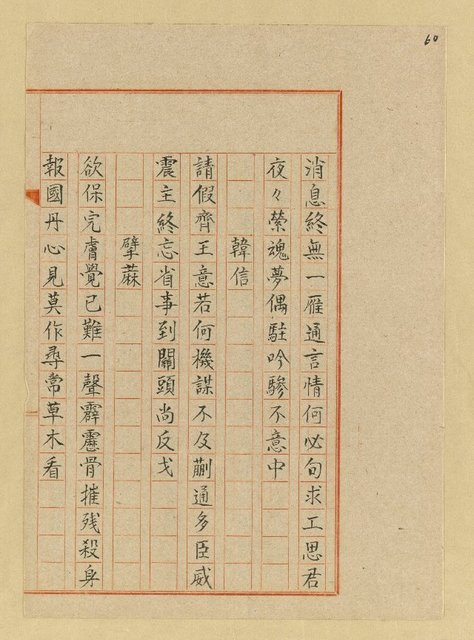 60
消息終無一雁通言情何必句求工思君
夜々縈魂夢偶駐吟驂不意中
韓信
請假齊王意若何機謀不及蒯通多臣威
震主終忘省事到關頭尚反戈
擘蔴
欲保完膚覺已難一聲霹靂骨摧残殺身
報國丹心見莫作尋常草木看